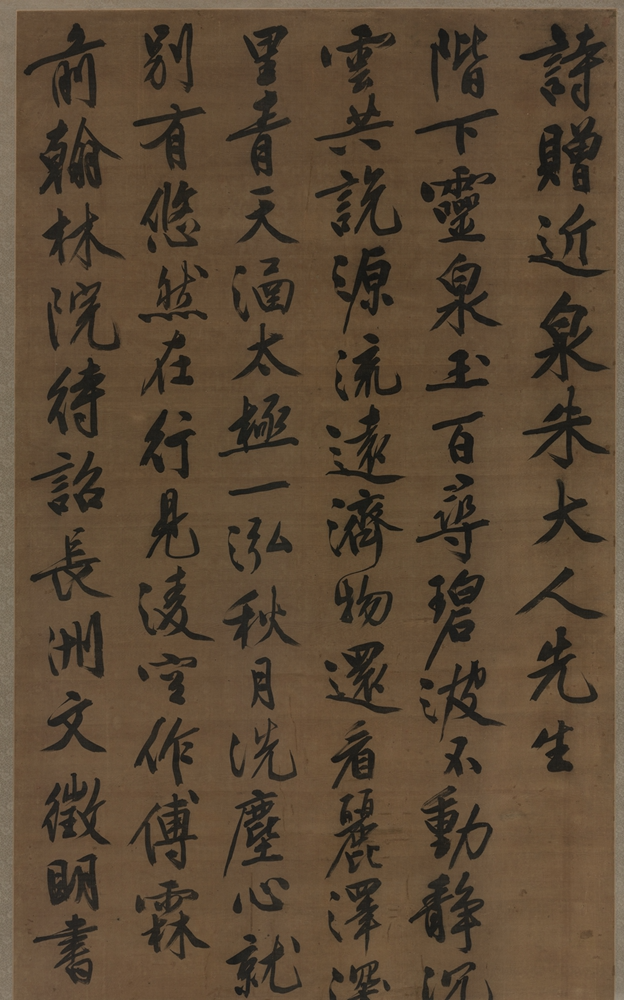 詩贈近泉朱大人先生
階下靈泉玉百尋碧波不動靜沉
雲共說源流遠濟物還看麗澤深
里青天涵太極一泓秋月洗塵心就
別有悠然在行見淩空作傅霖
前翰林院待詔長洲文徵明書